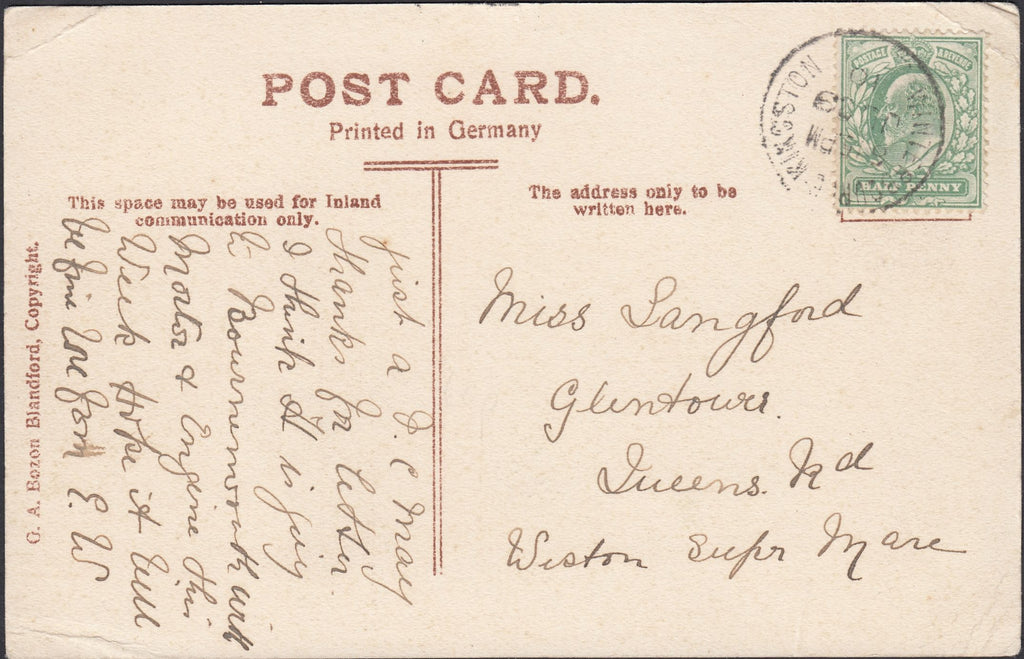 POST CARD.
Printed in Germany
This space may be used for Inland
communication only.
The address only to be
written here.
G. A. Bozon Blandford, Copyright.
POSTAGE & REVENUE
HALF PENNY
KINGSTON
PM
Just a P. C Many
thanks for letter.
I think H is going
to Bournemouth with
Motor & Engine this
Week Hope it will
be fine love from E. W
Miss Langford
Glentowrs.
Queens. Rd
Weston Supr Mare